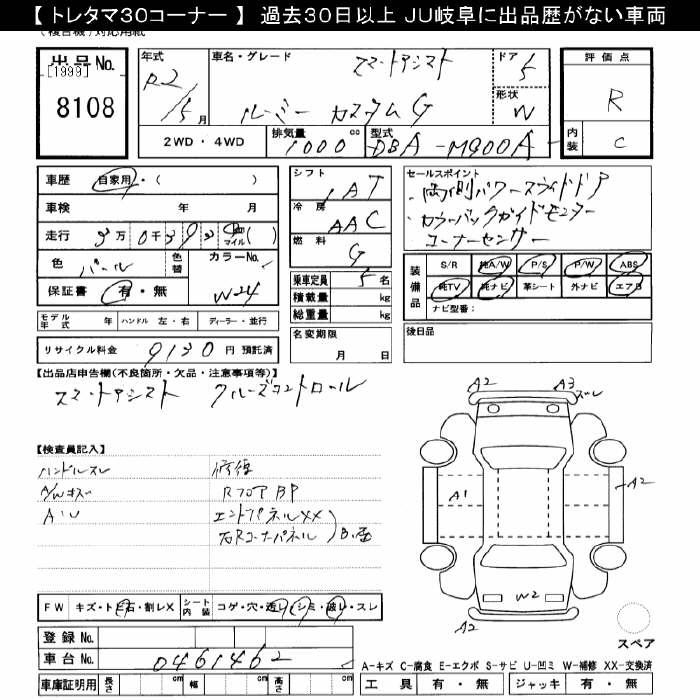 【 トレタマ30コーナー 】 過去30日以上 JU岐阜に出品歴がない車両
(複合機)対応用紙
出品No.
[1999]
8108
年式
R2/5月
車名・グレード
スマートアシスト
ルーミー カスタムG
ドア
5
形状
W
評価点
R
内装
C
2WD・4WD
排気量
1000cc
型式
DBA-M900A
車歴 自家用・( )
車検 年 月
走行 3万0千39 マイル( )
色 パール 色替 カラーNo. W24
保証書 有・無
モデル年式 年 ハンドル 左・右 ディーラー・並行
リサイクル料金 9130円 預託済
シフト
IAT
冷房
AAC
燃料
G
乗車定員 5名
積載量 kg
総重量 kg
名変期限
月 日
セールスポイント
・両側パワースライドドア
・カラーバックガイドモニター
コーナーセンサー
装備品
S/R 純A/W P/S P/W ABS
純TV 純ナビ 革シート 外ナビ エアB
ナビ型番:
後日品
【出品店申告欄(不良箇所・欠品・注意事項等)】
スマートアシスト クルーズコントロール
【検査員記入】
ハンドルスレ
A/Wキズ
AU
修復
RフロアBP
エンドパネルXX
右Rコーナーパネル
A2
A3
ズレ
A1
A2
W2
A2
スペア
FW キズ・トビ石・割レX シート内装 コゲ・穴・透レ・シミ・破レ・スレ
登録No.
車台No. 0461462
車庫証明用 長さ cm 幅 cm 高さ cm
A-キズ C-腐食 E-エクボ S-サビ U-凹ミ W-補修 XX-交換済
工具 有・無 ジャッキ 有・無